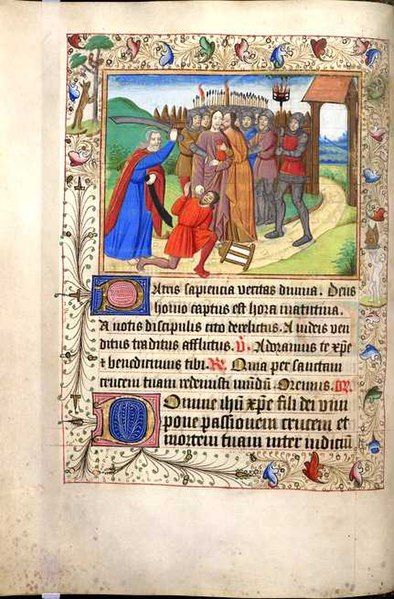 Patris sapiencia veritas divina. Deus
homo captus est hora matutina.
A notis discipulis cito derelictus. A iudeis ven
ditus traditus afflictus. V̷. Adoramus te xp̄e
& benedicimus tibi. R̷. Quia per sanctam
crucem tuam redemisti mūdū. Oremus. Or̄.
Domine ihū xp̄e fili dei vivi
pone passionem crucem et
mortem tuam inter iudiciū